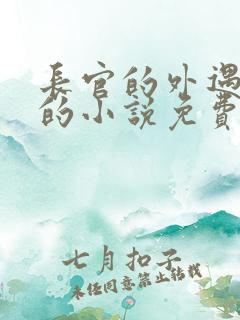 长官的外遇
的小说免费
七月扣子
未经同意禁止转载